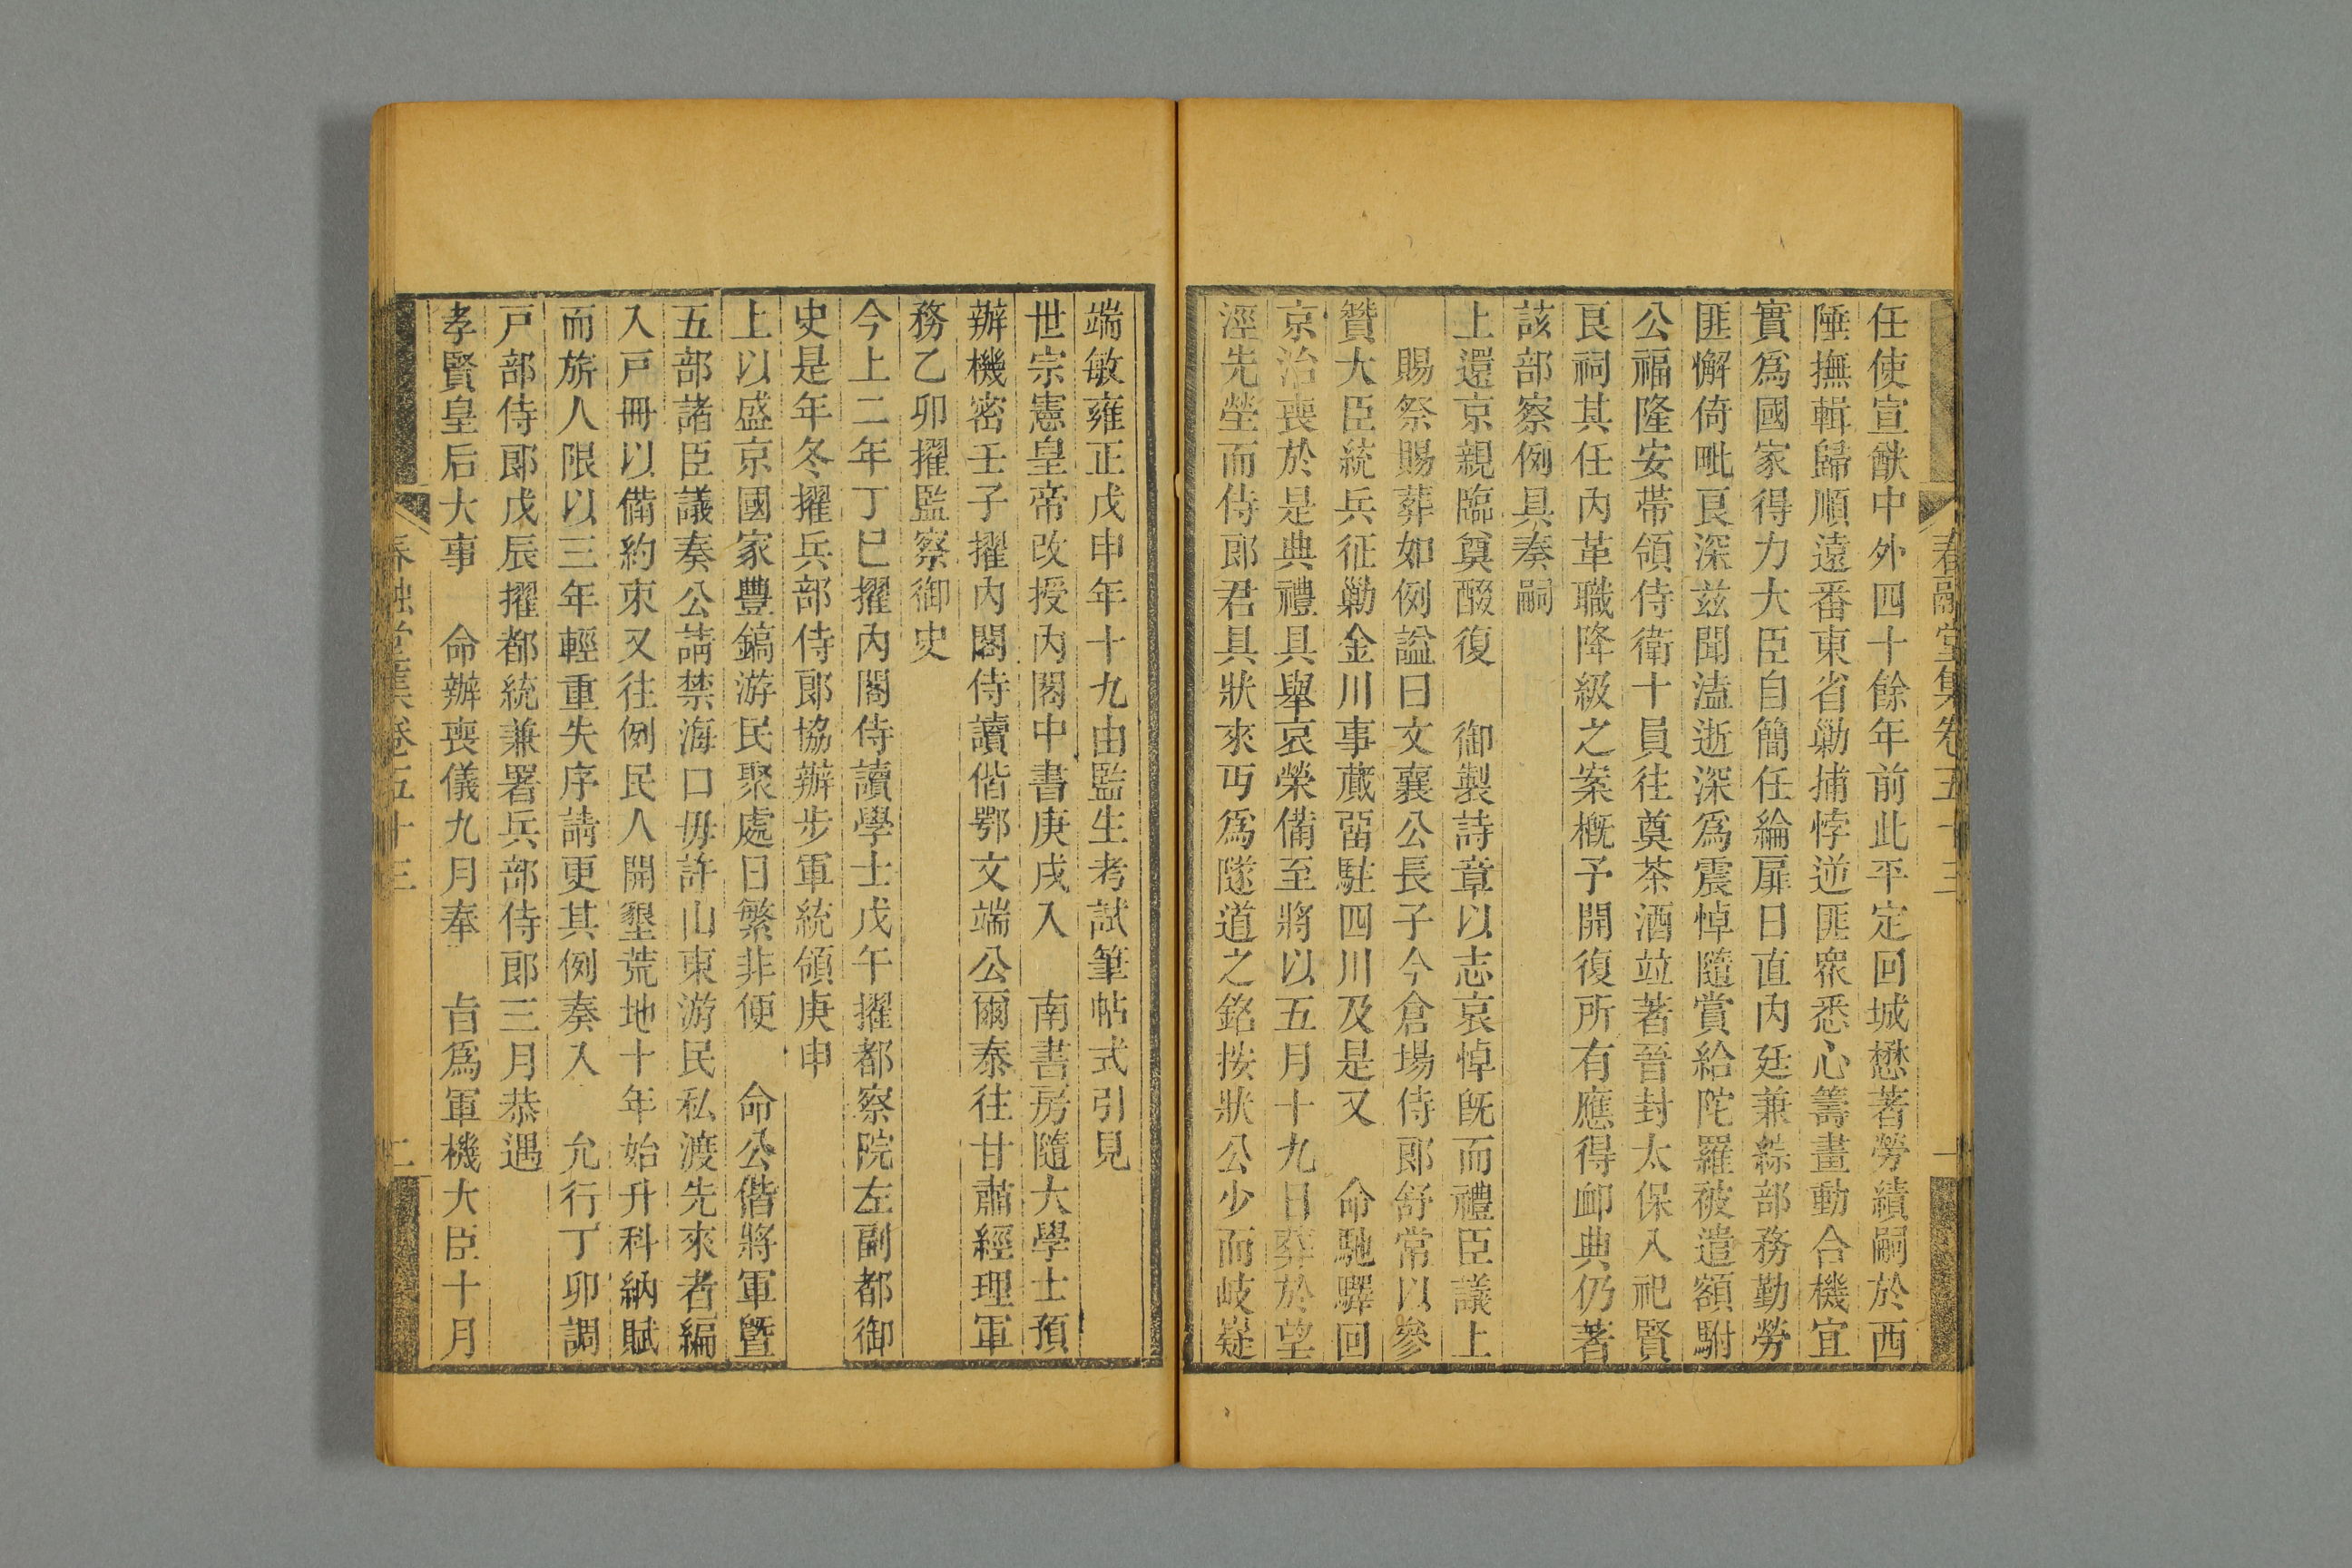 春融堂集卷五十三
一
任使宣猷中外四十餘年前此平定回城懋著勞績嗣於西
陲撫輯歸順遠番東省勦捕悖逆匪衆悉心籌畫動合機宜
實爲國家得力大臣自簡任綸扉日直内廷兼綜部務勤勞
匪懈倚毗良深兹聞溘逝深爲震悼隨賞給陀羅被遣額駙
公福隆安帶領侍衛十員往奠茶酒竝著晉封太保入祀賢
良祠其任内革職降級之案概予開復所有應得卹典仍著
該部察例具奏嗣
上還京親臨奠醊復　御製詩章以志哀悼旣而禮臣議上
　賜祭賜葬如例諡曰文襄公長子今倉場侍郎舒常以參
贊大臣統兵征勦金川事蕆畱駐四川及是又　命馳驛回
京治喪於是典禮具舉哀榮備至將以五月十九日葬於望
涇先塋而侍郎君具狀來丐爲隧道之銘按狀公少而岐嶷
端敏雍正戊申年十九由監生考試筆帖式引見
世宗憲皇帝改授内閣中書庚戌入　南書房隨大學士預
辦機密壬子擢内閣侍讀偕鄂文端公爾泰往甘肅經理軍
務乙卯擢監察御史
今上二年丁巳擢内閣侍讀學士戊午擢都察院左副都御
史是年冬擢兵部侍郎協辦步軍統領庚申
上以盛京國家豐鎬游民聚處日繁非便　命公偕將軍曁
五部諸臣議奏公請禁海口毋許山東游民私渡先來者編
入戸冊以備約束又往例民人開墾荒地十年始升科納賦
而旂人限以三年輕重失序請更其例奏入　允行丁卯調
戸部侍郎戊辰擢都統兼署兵部侍郎三月恭遇
孝賢皇后大事　命辦喪儀九月奉　旨爲軍機大臣十月
春融堂集卷五十三
二